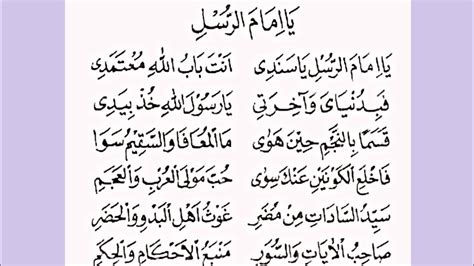 يَا اِمَامَ الرُّسْلِ
يَا اِمَامَ الرُّسْلِ يَا سَنَدِى اَنْتَ بَابُ اللهِ مُعْتَمَدِى
فَبِدُنْيَايَ وَآخِرَتِي يَارَسُولَ اللهِ خُذْ بِيَدِى
قَسَمًا بِالنَّجْمِ حِيْنَ هَوٰى مَاالْمُعَافَا وَالسَّقِيْمُ سَوَا
فَاخْلَعِ الْكَوْنَيْنِ عَنْكَ سِوٰى حُبِّ مَوْلَى الْعُرْبِ وَالْعَجَمِ
سَيِّدُ السَّادَاتِ مِنْ مُضَرِ غَوْثُ اَهْلِ الْبَدْوِ وَالْحَضَرِ
صَاحِبُ الْاٰيَاتِ وَالسُّوَرِ مَنْبَعُ الْاَحْكَامِ وَالْحِكَمِ